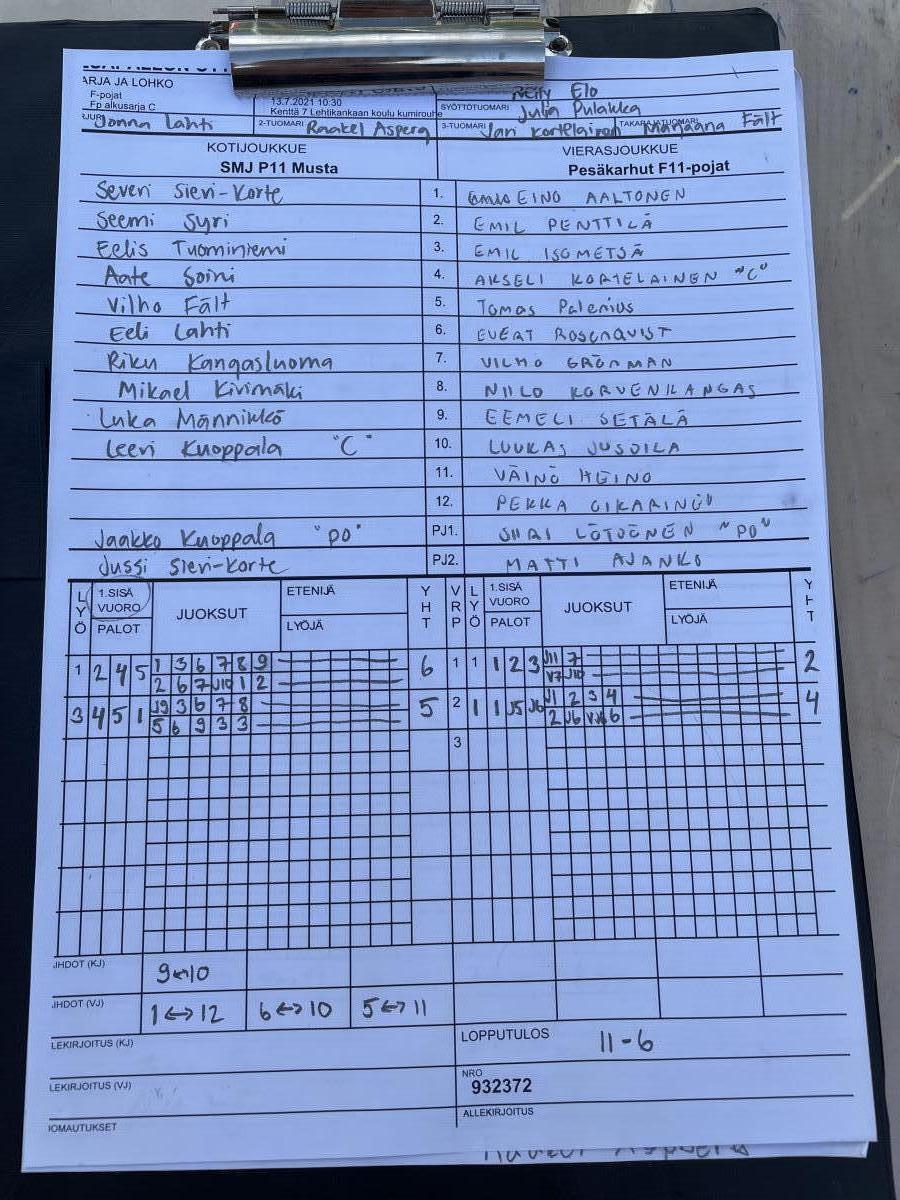 ARJA JA LOHKO
F-pojat
Fp alkusarja C
13.7.2021 10:30
Kenttä 7 Lehtikankaan koulu kumirouhe
Elo
SYÖTTÖTUOMARI Julia Pulakka
Jonna Lahti 2-TUOMARI Raakel Asperg 3-TUOMARI Jari Kortelainen TAKARAJATUOMARI Marjaana Fält
KOTIJOUKKUE VIERASJOUKKUE
SMJ P11 Musta Pesäkarhut F11-pojat
Severi Sieri-Korte 1. EINO AALTONEN
Seemi Syri 2. EMIL PENTTILÄ
Eelis Tuominiemi 3. EMIL ISOMETSÄ
Aate Soini 4. AKSELI KORTELAINEN "C"
Vilho Fält 5. Tomas Palenius
Eeli Lahti 6. EVERT ROSENQVIST
Riku Kangasluoma 7. VILHO GRÖNMAN
Mikael Kivimäki 8. NIILO KORVENKANGAS
Luka Männikkö 9. EEMELI SETÄLÄ
Leevi Kuoppala "C" 10. LUUKAS JUSOILA
11. VÄINÖ HEINO
12. PEKKA
Jaakko Kuoppala "PO" PJ1. "PO"
Jussi Sieri-Korte PJ2. MATTI AJANKO
LYÖ 1.SISÄ VUORO PALOT JUOKSUT ETENIJÄ LYÖJÄ YHT VRP LYÖ 1.SISÄ VUORO PALOT JUOKSUT ETENIJÄ LYÖJÄ YHT
1 2 4 5 1 3 6 7 8 9 6 1 1 1 2 3 J11 7 2
2 6 7 J10 1 2 V7 J10
3 4 5 1 J9 3 6 7 8 5 2 1 1 J5 J6 J1 2 3 4 4
5 6 9 3 3 2 J6 6
3
JHDOT (KJ) 9↔10
JHDOT (VJ) 1↔12 6↔10 5↔11
LEKIRJOITUS (KJ) LOPPUTULOS 11-6
LEKIRJOITUS (VJ) NRO 932372
IOMAUTUKSET ALLEKIRJOITUS